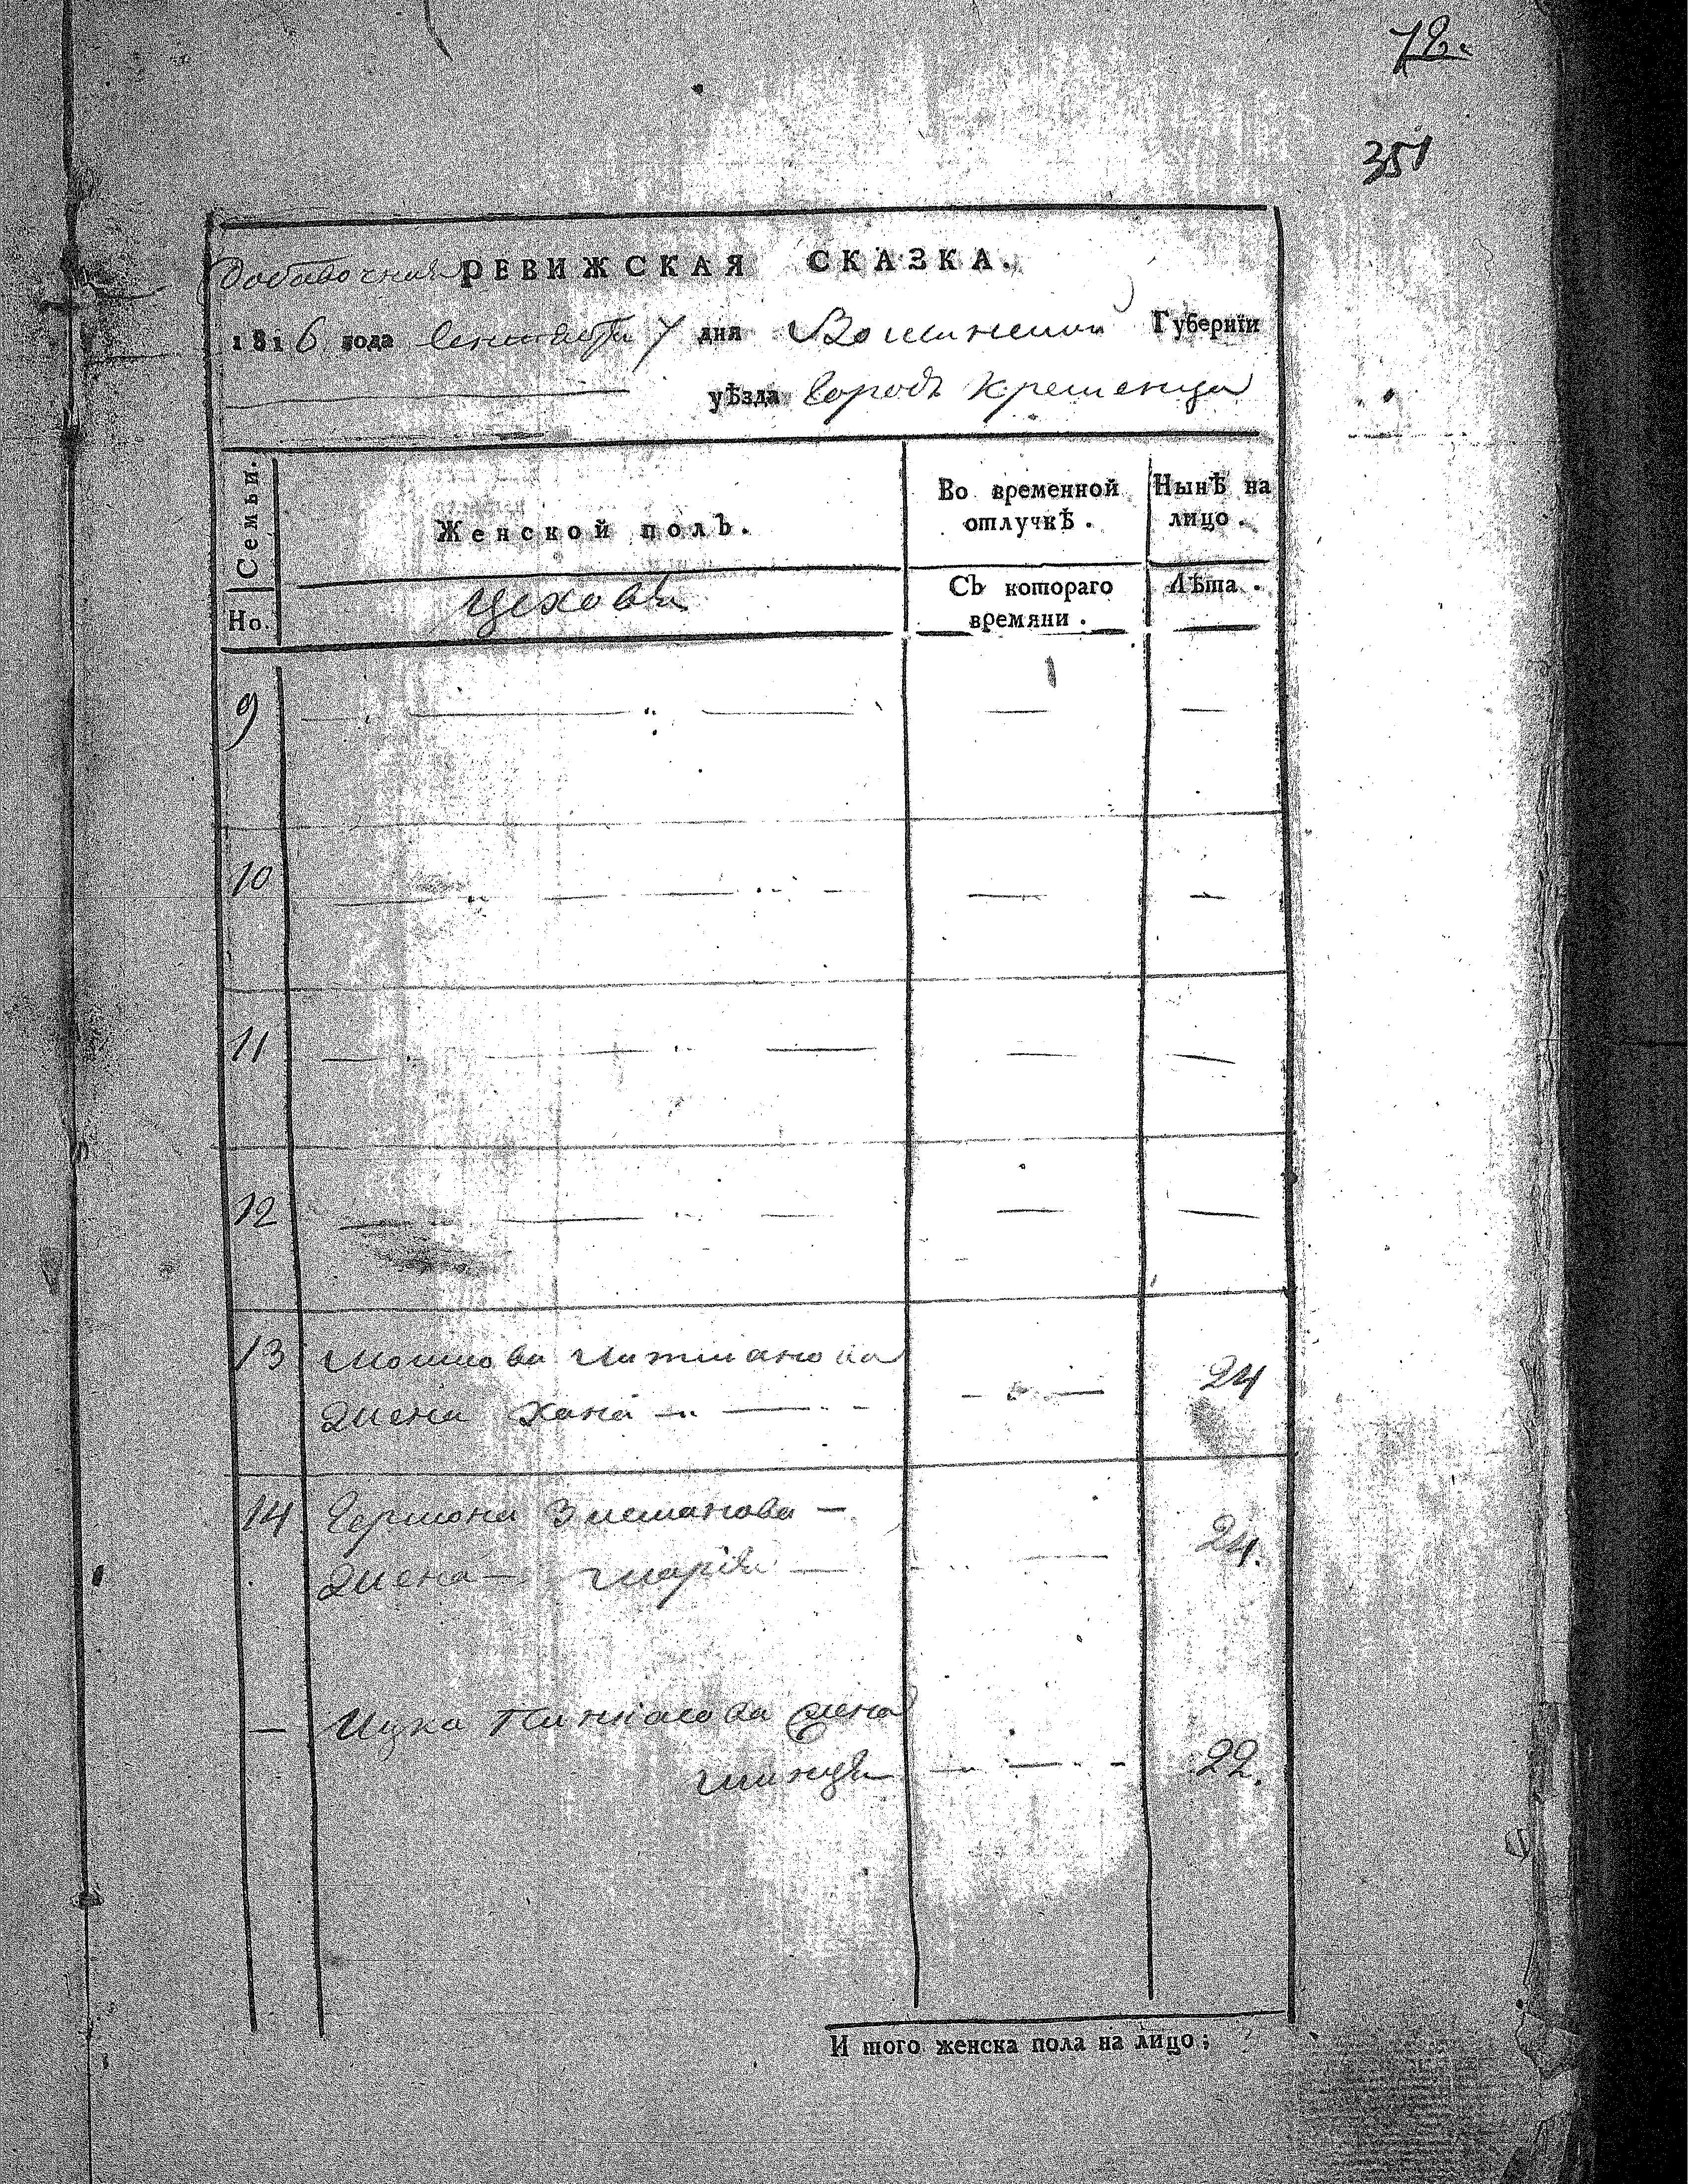 72.
351
Добавочная РЕВИЖСКАЯ СКАЗКА.
1816 года Сентября 7 дня Волынской Губерніи
уѣзда Городъ Кременца
Семьи.
Женской полъ.
Во временной отлучкѣ.
Нынѣ на лицо.
Но.
Цеховыя
Съ котораго времяни.
Лѣта.
9
10
11
12
13 Мошкова
жена Хана 24
14 Гершона Зисманова
жена Марія 24.
Ицка Пинкасова жена
22.
И того женска пола на лицо: